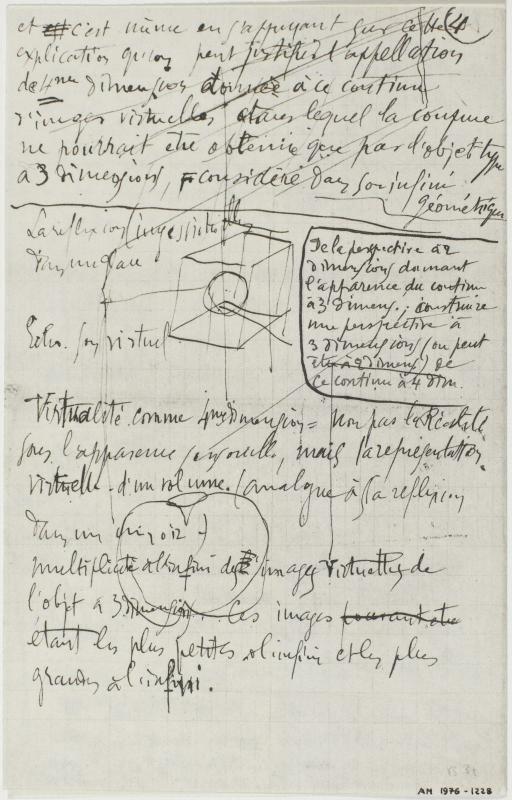 et est c'est même en s'appuyant sur cette (4
explication qu'on peut justifier l'appellation
de 4me dimension donnée à ce continu
d'images virtuelles dans lequel la
ne pourrait être obtenue que par l'objet type
à 3 dimensions, considéré dans son infini
géométrique
La réflexion (image virtuelle
dans un
Echo. son virtuel
De la perspective à 2
dimensions donnant
l'apparence du continu
à 3 dimens.; construire
une perspective à
3 dimensions (ou peut
être à 2 dimens) de
ce continu à 4 dim.
Virtualité comme 4me dimension = Non pas la Réalité
sous l'apparence sensorielle, mais la représentation
virtuelle d'un volume. (analogue à sa réflexion
dans un miroir)
multiplicité à l'infini des images virtuelles de
l'objet à 3 dimensions. Ces images pouvant être
étant les plus petites à l'infini et les plus
grandes à l'infini.
B 31
AM 1976 - 1228